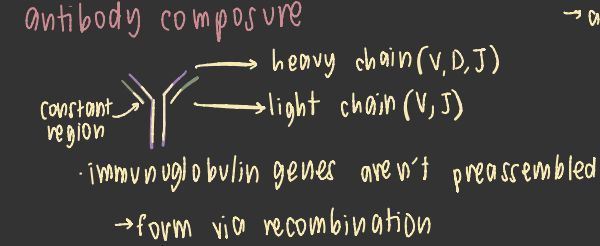 antibody composure
→ a
→ heavy chain (V, D, J)
→ light chain (V, J)
constant
region
· immunoglobulin genes aren't preassembled
→ form via recombination